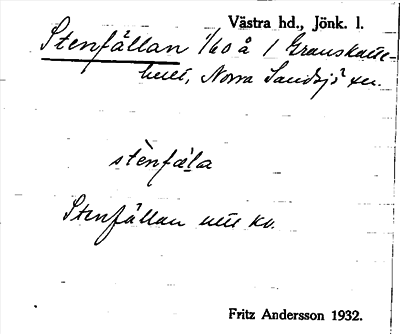 Västra hd., Jönk. l.
Stenfällan 1/60 å 1 Granskatte-
hult, Norra Sandsjö sn.
stènfäla
Stenfällan
kv.
Fritz Andersson 1932.